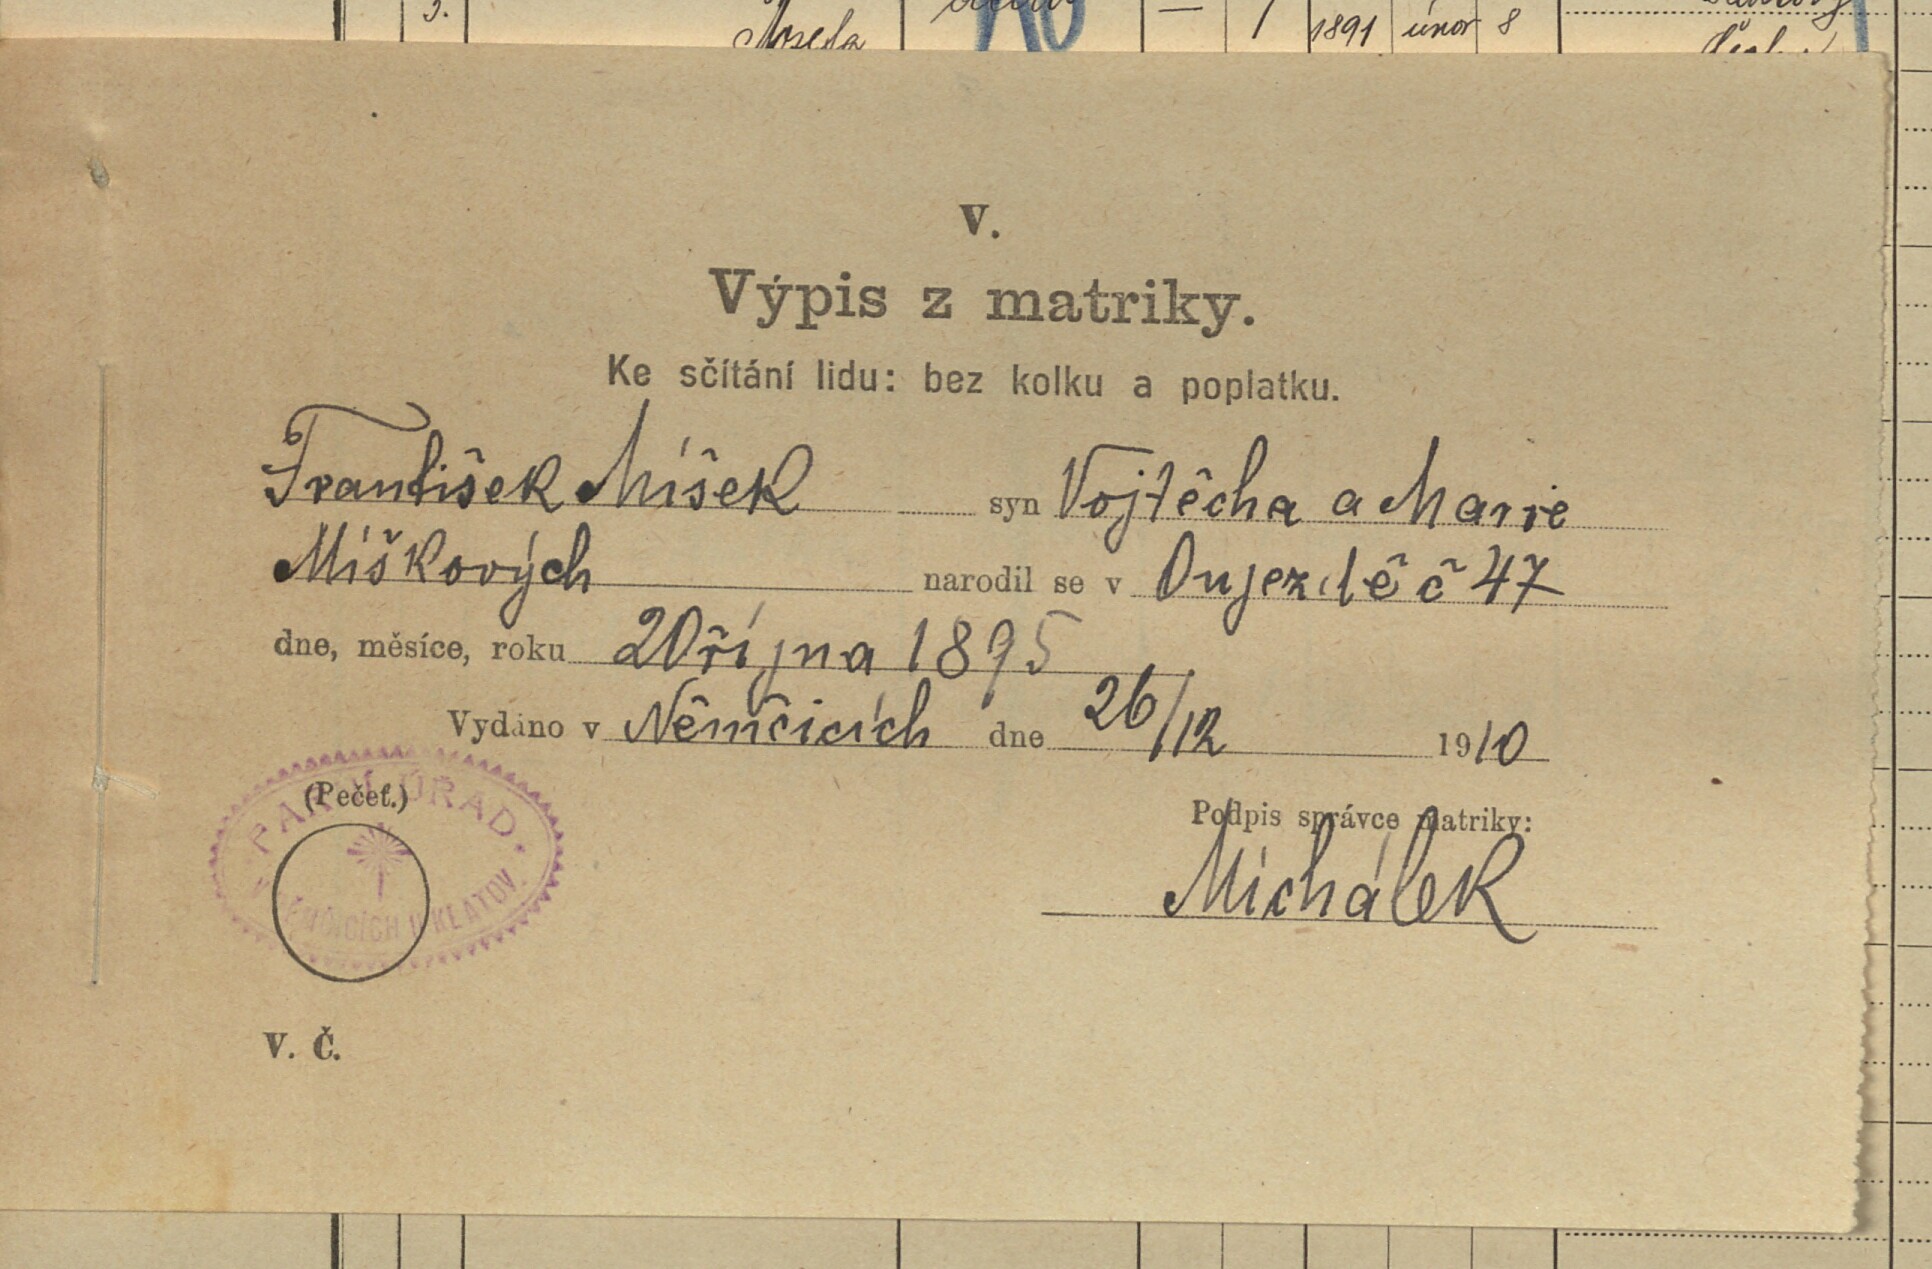 3.
Josefa
1891 únor 8
V.
Výpis z matriky.
Ke sčítání lidu: bez kolku a poplatku.
František Míšek syn Vojtěcha a Marie
Míškových narodil se v Oujezdě č 47
dne, měsíce, roku 20 října 1895
Vydáno v Němčicích dne 26/12 1910
(Pečeť.)
FARNÍ ÚŘAD
V NĚMČICÍCH U KLATOV.
Podpis správce matriky:
Michálek
V. Č.